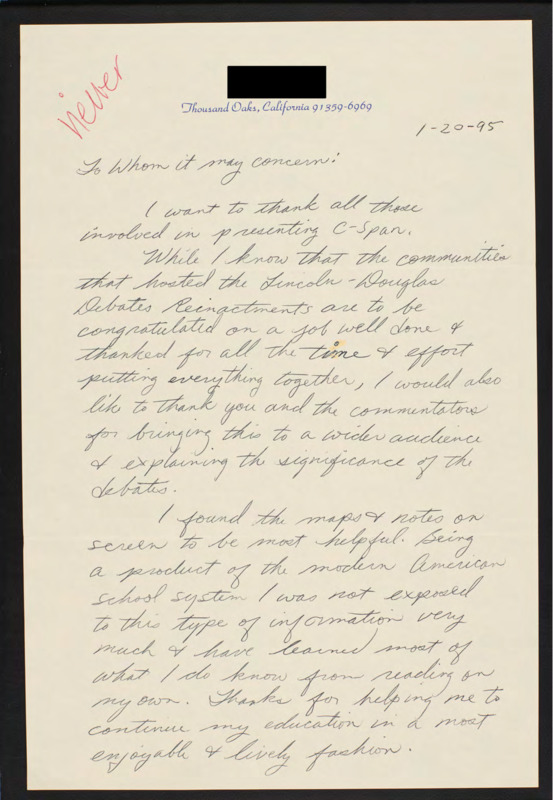 viewer
Thousand Oaks, California 91359-6969
1-20-95
To Whom it may concern:
I want to thank all those
involved in presenting C-Span.
While I know that the communities
that hosted the Lincoln-Douglas
Debates Reinactments are to be
congratulated on a job well done &
thanked for all the time & effort
putting everything together, I would also
like to thank you and the commentators
for bringing this to a wider audience
& explaining the significance of the
debates.
I found the maps & notes on
screen to be most helpful. Being
a product of the modern American
school system I was not exposed
to this type of information very
much & have learned most of
what I do know from reading on
my own. Thanks for helping me to
continue my education in a most
enjoyable & lively fashion.